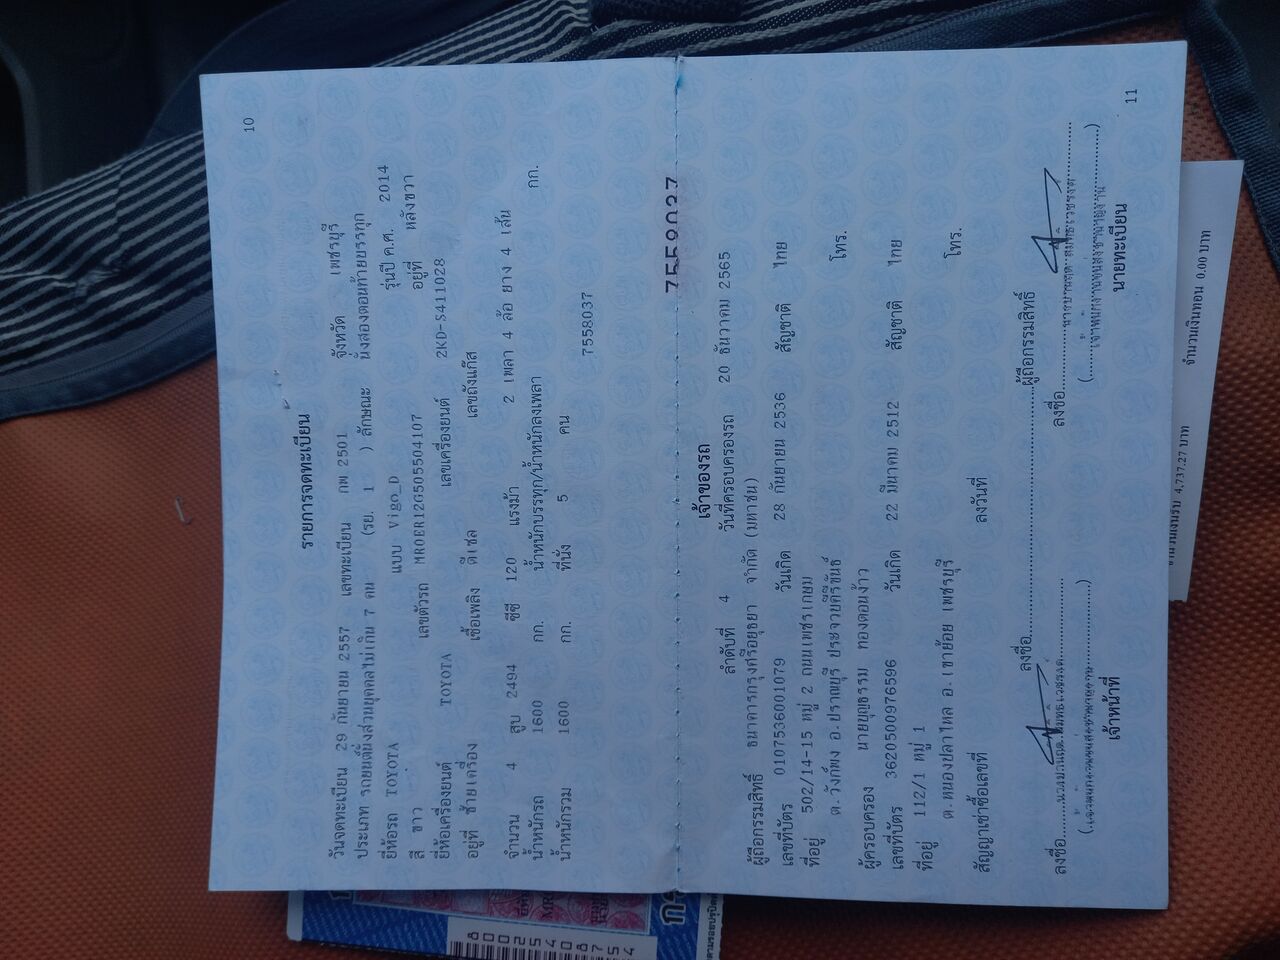 10
รายการจดทะเบียน
วันจดทะเบียน 29 กันยายน 2557 เลขทะเบียน กพ 2501 จังหวัด เพชรบุรี
ประเภท รถยนต์นั่งส่วนบุคคลไม่เกิน 7 คน (รย. 1 ) ลักษณะ นั่งสองตอนท้ายบรรทุก
ยี่ห้อรถ TOYOTA แบบ Vigo_D รุ่นปี ค.ศ. 2014
สี ขาว เลขตัวรถ MR0ER12G505504107 อยู่ที่ หลังขวา
ยี่ห้อเครื่องยนต์ TOYOTA เลขเครื่องยนต์ 2KD-S411028
อยู่ที่ ซ้ายเครื่อง เชื้อเพลิง ดีเซล เลขถังแก๊ส
จำนวน 4 สูบ 2494 ซีซี 120 แรงม้า 2 เพลา 4 ล้อ ยาง 4 เส้น
น้ำหนักรถ 1600 กก. น้ำหนักบรรทุก/น้ำหนักลงเพลา กก.
น้ำหนักรวม 1600 กก. ที่นั่ง 5 คน 7558037
7558037
เจ้าของรถ
ลำดับที่ 4 วันที่ครอบครองรถ 20 ธันวาคม 2565
ผู้ถือกรรมสิทธิ์ ธนาคารกรุงศรีอยุธยา จำกัด (มหาชน)
เลขที่บัตร 0107536001079 วันเกิด 28 กันยายน 2536 สัญชาติ ไทย
ที่อยู่ 502/14-15 หมู่ 2 ถนนเพชรเกษม
ต.วังก์พง อ.ปราณบุรี ประจวบคีรีขันธ์ โทร.
ผู้ครอบครอง นายบุญธรรม ทองดอนง้าว
เลขที่บัตร 3620500976596 วันเกิด 22 มีนาคม 2512 สัญชาติ ไทย
ที่อยู่ 112/1 หมู่ 1
ต.หนองปลาไหล อ.เขาย้อย เพชรบุรี โทร.
สัญญาเช่าซื้อเลขที่ ลงวันที่
ลงชื่อ ผู้ถือกรรมสิทธิ์
ลงชื่อ
ลงชื่อ
เจ้าหน้าที่
นายทะเบียน
11
จำนวนเงินรับ 4,737.27 บาท จำนวนเงินทอน 0.00 บาท